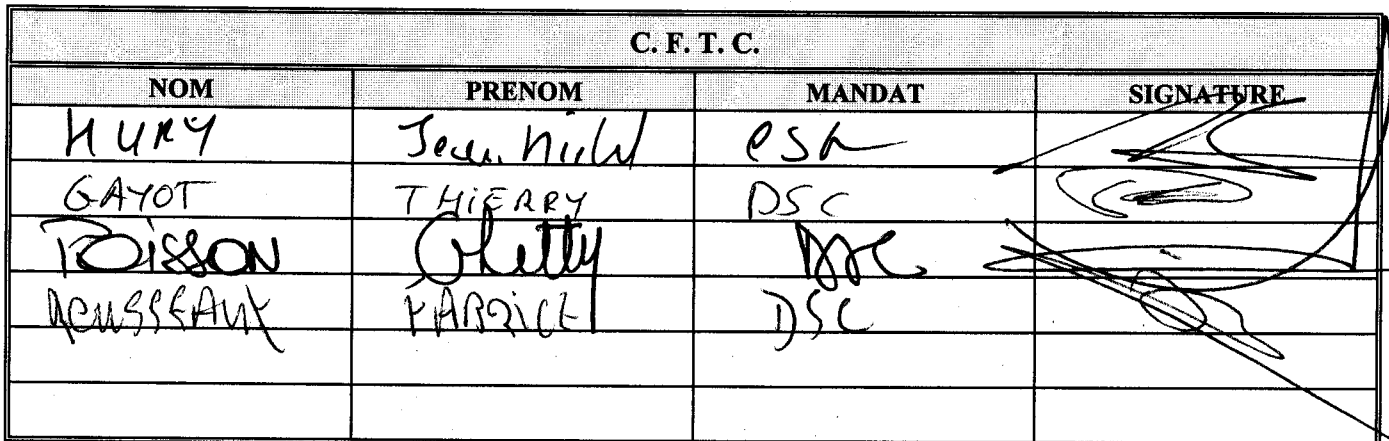 C. F. T. C.
NOM PRENOM MANDAT SIGNATURE
HURY Jean Michel
GAYOT THIERRY DSC
POISSON Chetty DSC
ROUSSEAUX FABRICE DSC